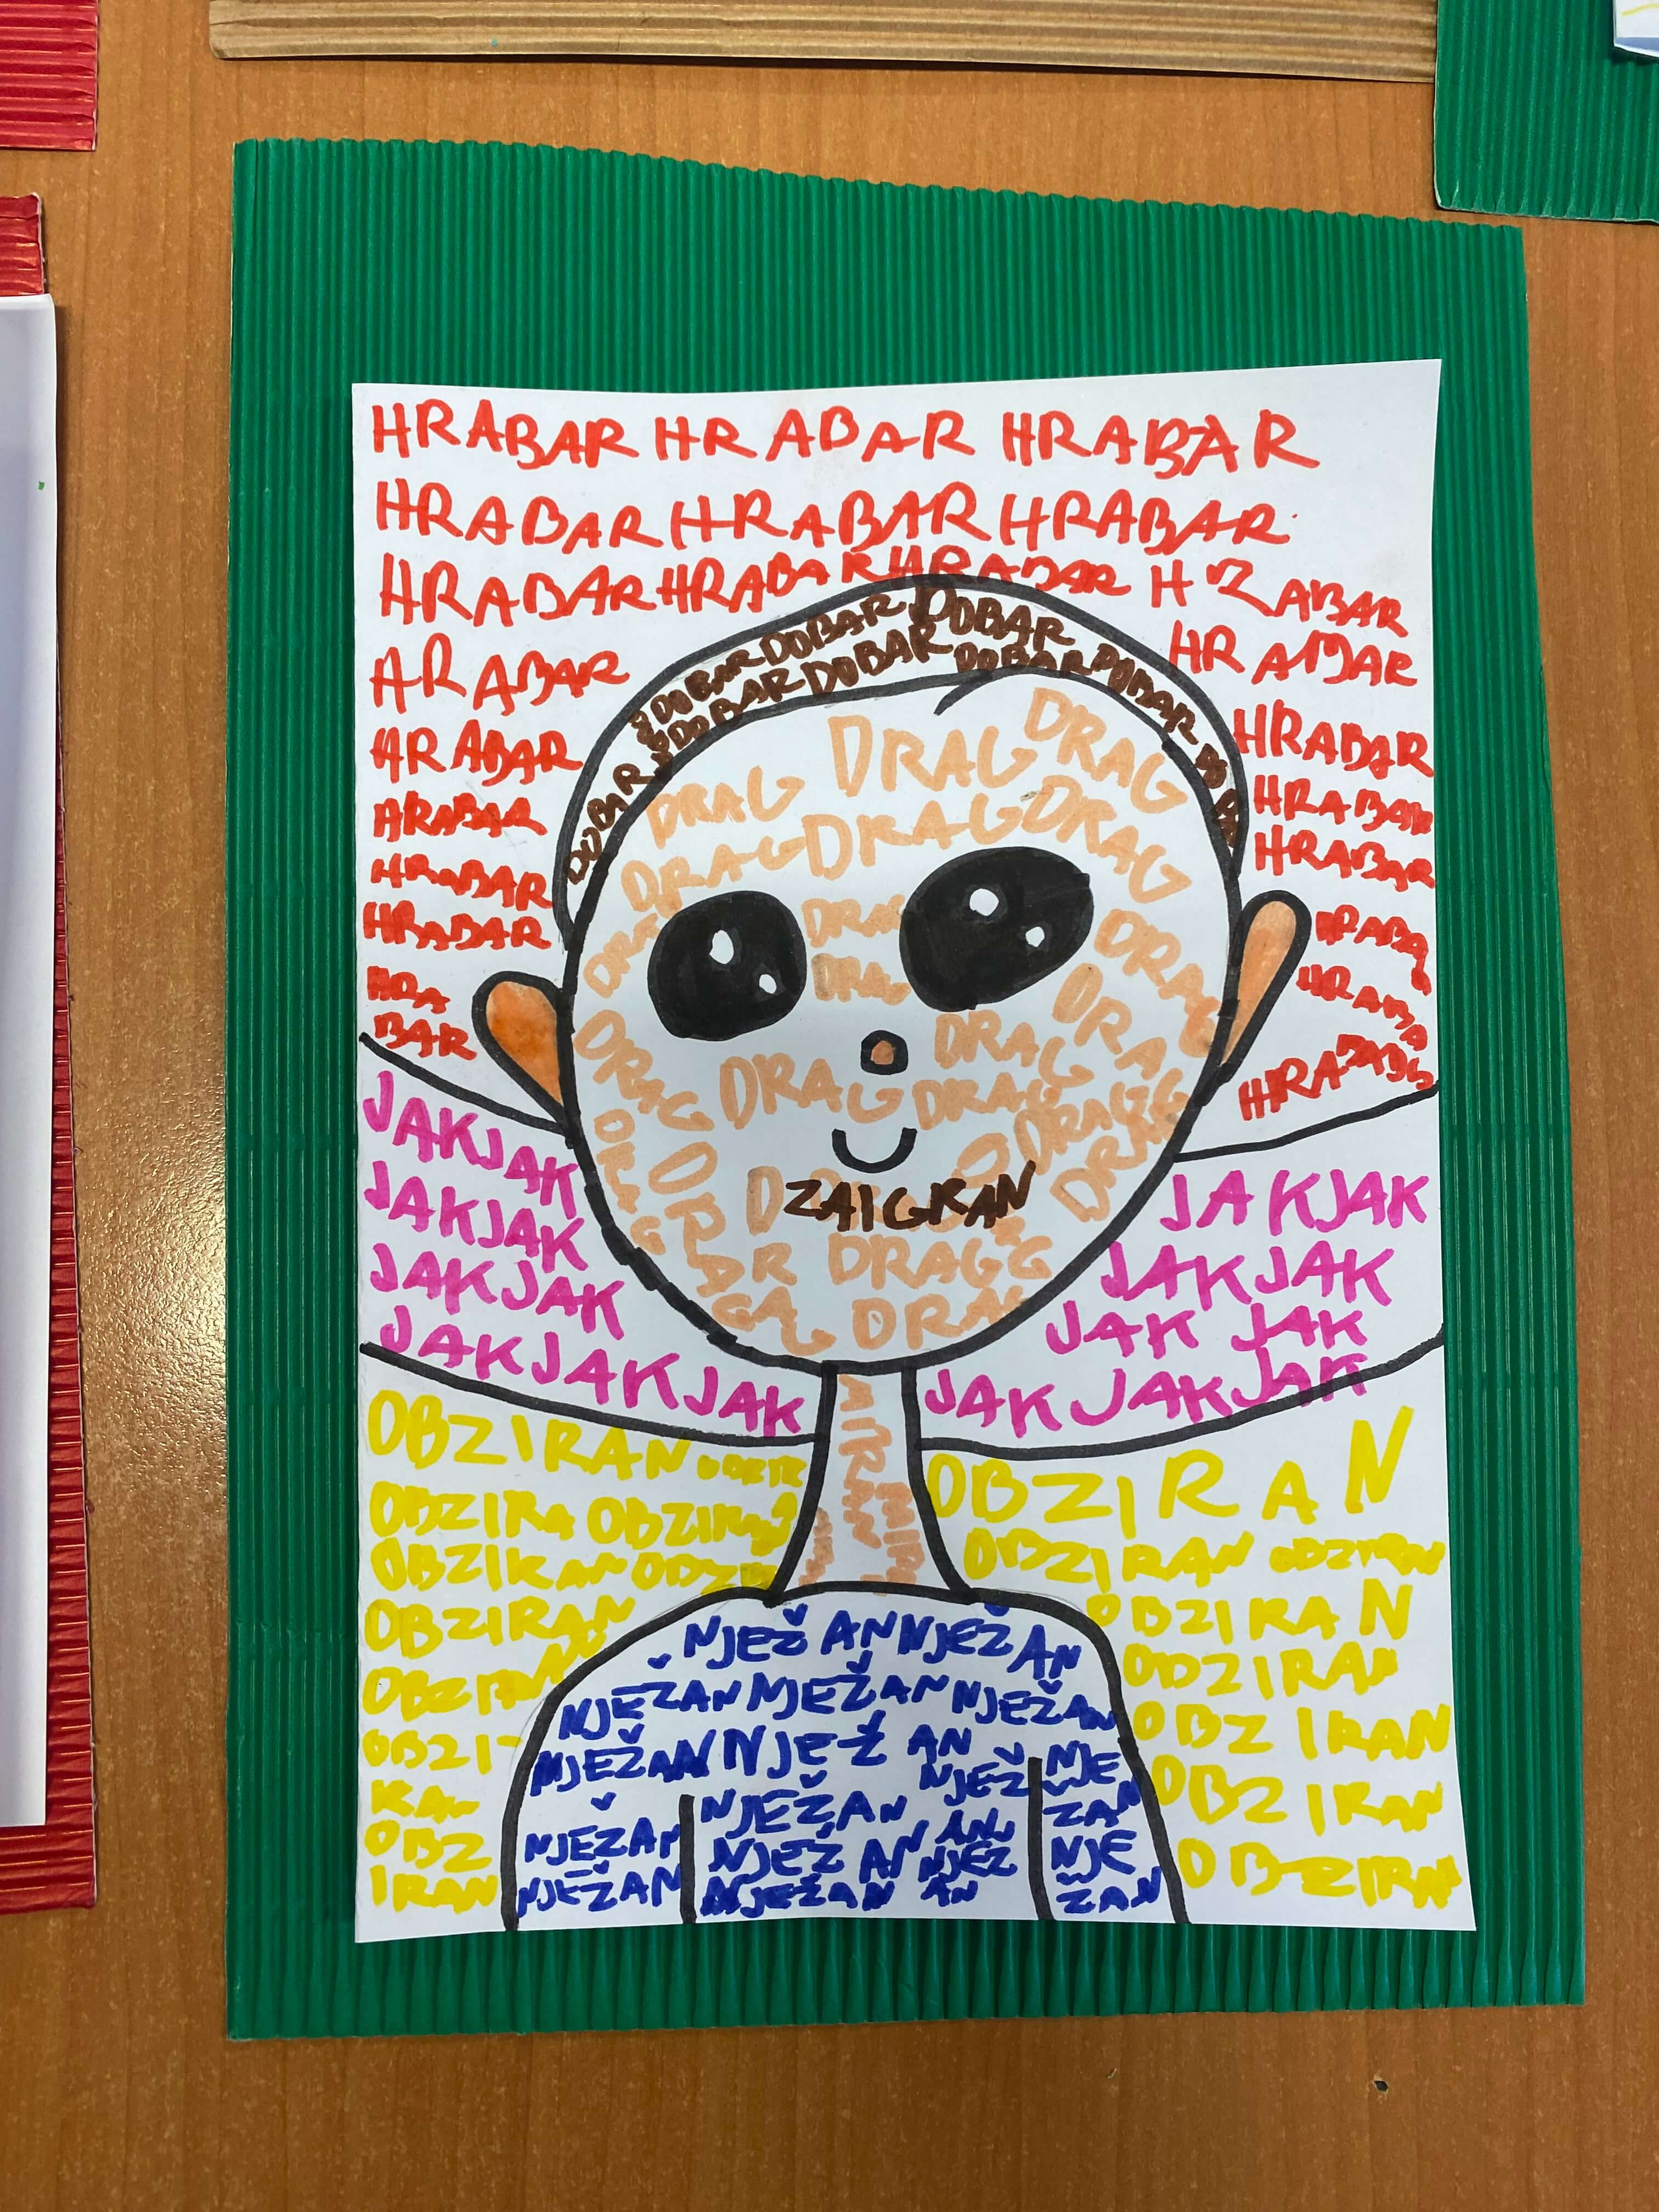 HRABAR HRABAR HRABAR
HRABAR HRABAR HRABAR
HRABAR HRABAR HRABAR HRABAR
HRABAR HRABAR
HRABAR HRABAR
HRABAR HRABAR
HRABAR HRABAR
HRABAR HRABA
HRA HRABA
BAR
DOBAR DOBAR DOBAR DOBAR
DOBAR DOBAR DOBAR
DOBAR
DRAG DRAG DRAG
DRAG DRAG DRAG
DRAG DRAG
DRAG DRAG
DRAG DRAG DRAG
DRAG DRAG DRAG
DRAG DRAG
ZAIGRAN
DRAG
DRAG
JAK JAK
JAK JAK JAK JAK
JAK JAK JAK JAK
JAK JAK JAK JAK JAK
JAK JAK JAK
OBZIRAN OBZIRAN
OBZIRA OBZIRAN OBZIRAN
OBZIRAN OBZIRAN
OBZIRAN OBZIRAN
OBZIRAN OBZIRAN
OBZI OBZIRAN
RAN
OBZ OBZIRN
IRAN
MIRAN
NJEŽAN NJEŽAN
NJEŽAN NJEŽAN NJEŽAN
NJEŽAN NJEŽ AN
NJEŽ NJE
NJEŽAN ŽAN
NJEŽAN NJEŽAN NJEŽ NJE
NJEŽAN NJEŽAN AN ŽAN